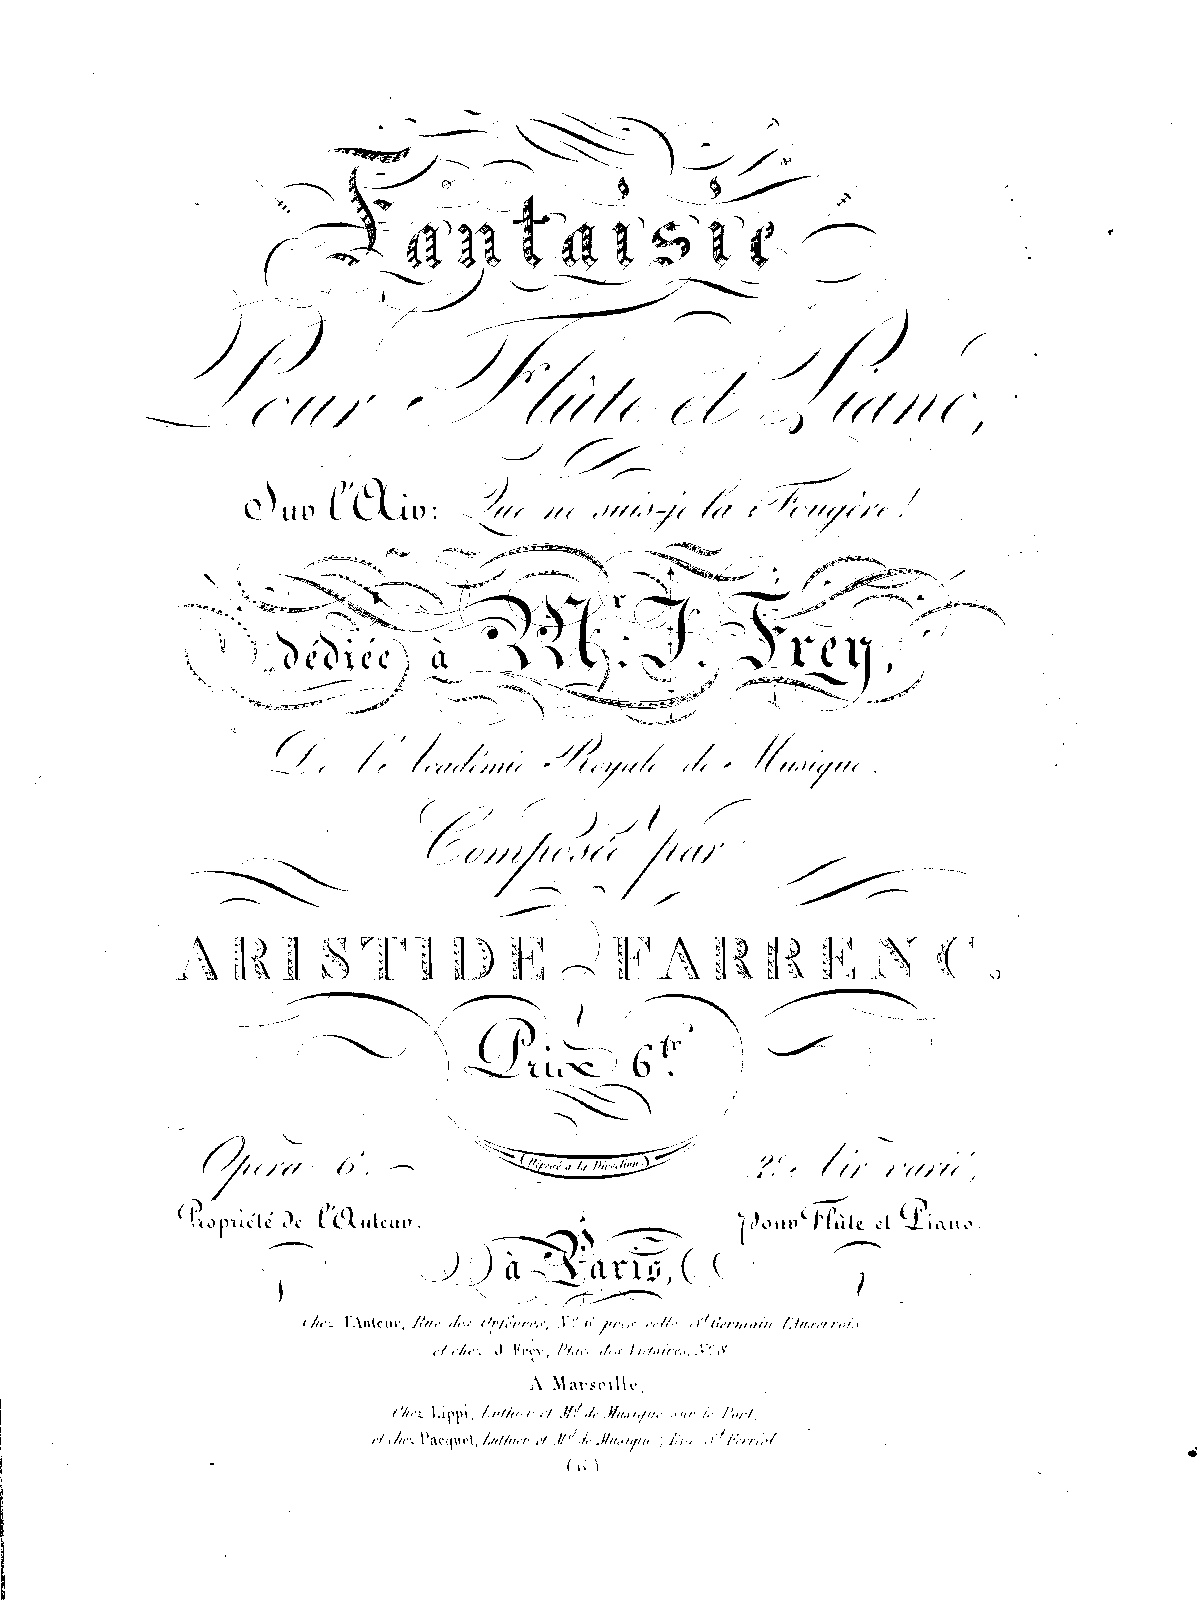 Fantaisie
Pour Flûte et Piano,
Sur l'Air: Que ne suis-je la Fougère!
dédiée à Mr. J. Frey,
De l'Académie Royale de Musique.
Composée par
ARISTIDE FARRENC.
Prix 6fr.
Opera 6.
(Déposé à la Direction)
2e. Air varié,
Propriété de l'Auteur.
pour Flûte et Piano.
à Paris,
Chez l'Auteur, Rue des Orfèvres, No. 6 près celle St Germain l'Auxerrois
et chez J. Frey, Place des Victoires, No. 8
A Marseille,
Chez Lippi, Luthier et Md de Musique sur le Port,
et chez Pacquet, Luthier et Md de Musique, Rue St Ferréol